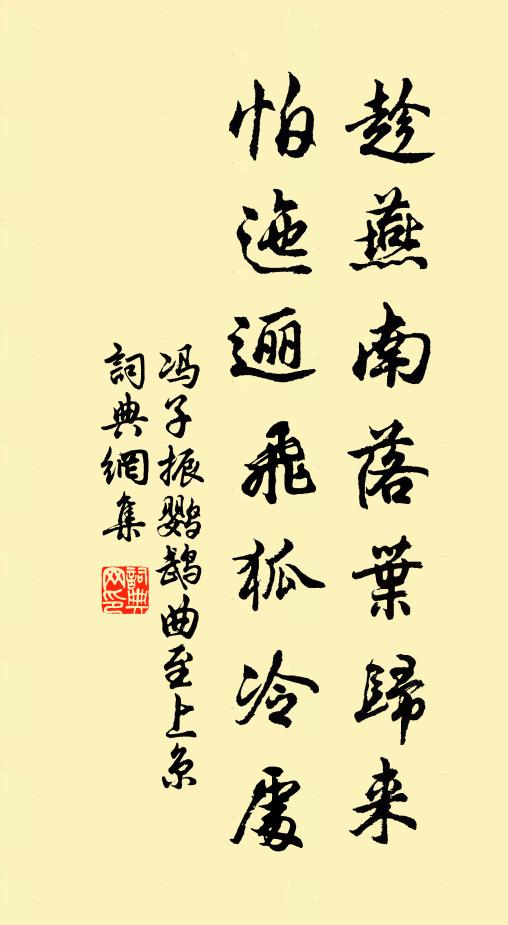 趁燕南落葉歸来
怕迤逦飛狐冷處
冯子振鹦鹉曲至上京
詞典網集
詞典
网印